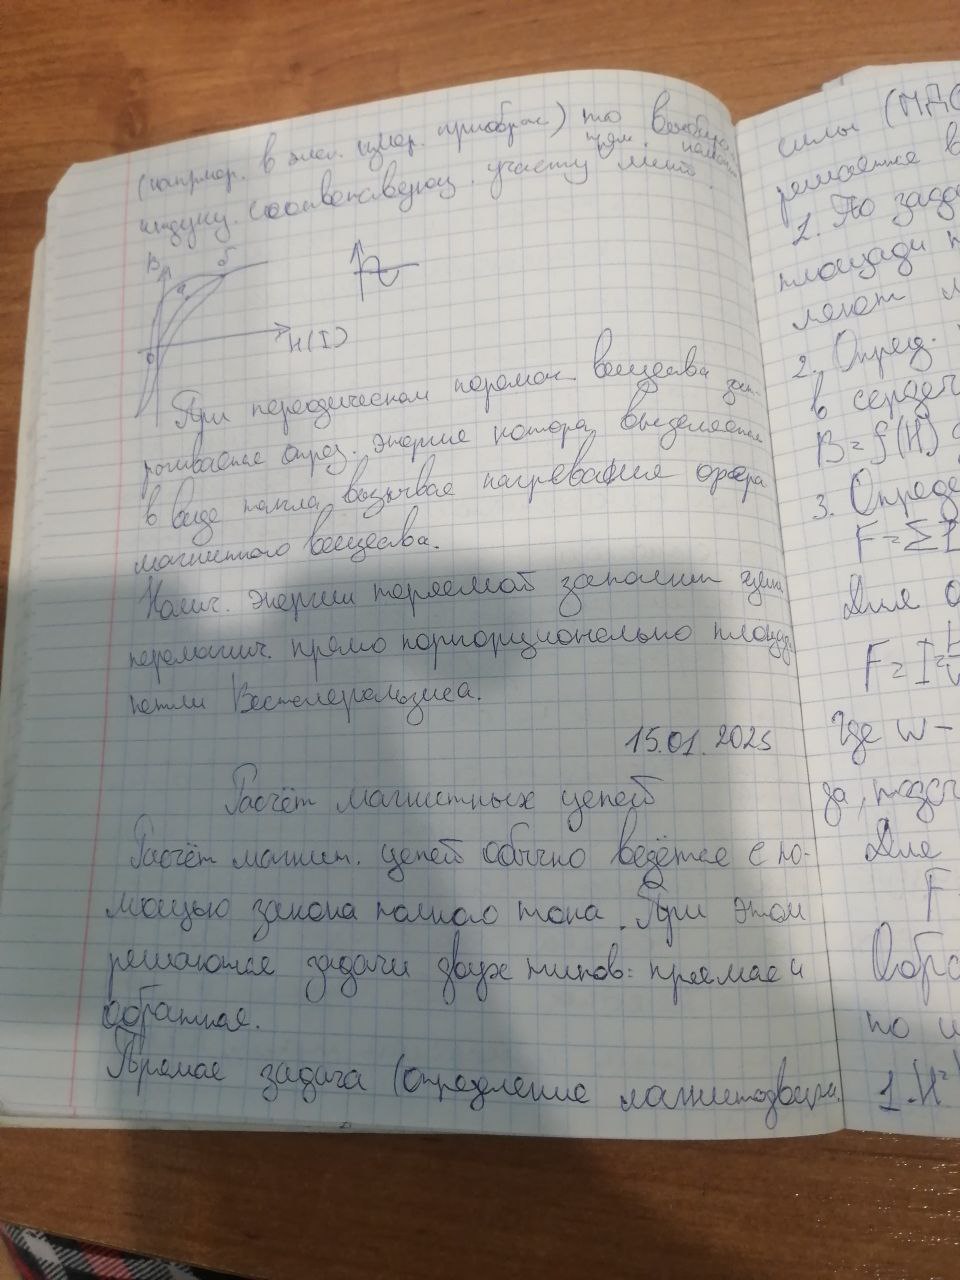 (напрмар. в элел. измер. приобрах) то
прям.
индукц. соответсверющ. участу
В
а
б
0
H(I)
При переодическом перемаг. вещества
рачивается опрез. энергие котора выделяется
в виде тепла, вызывае нагревание фера
магнитого вещества.
Колич. энергии теряемой
перемагнич. прямо порпорционально площад.
петли
15.01.2025
Расчёт магнитных цепей
Расчёт магнит. цепей обычно ведётся с по-
мощью закона полного тока. При этом
решаются задачи двух типов: прямае и
обратная.
Прямае задача (определение магнитодвиж.
силы (МДС
решается в
1. По зада
площади п
ляют м
2. Опред.
в сердеч
B=f(H)
3. Опреде
F=ΣI
Для о
F=I=
Где w-
за,
Для
F
Обра
по и
1.